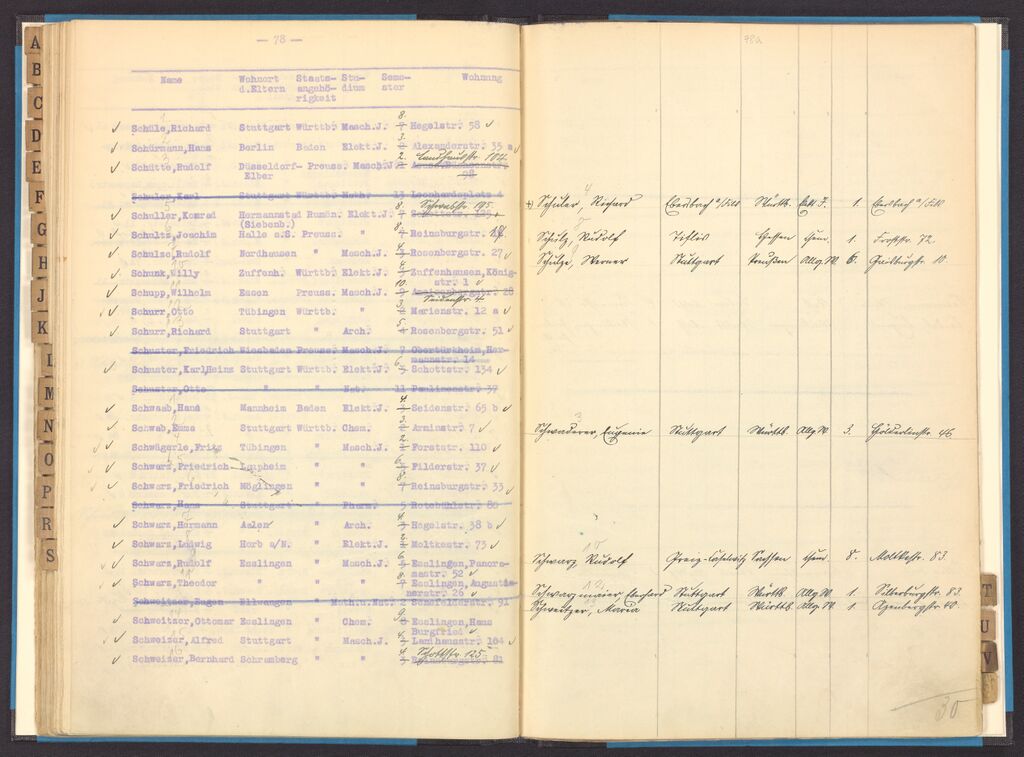 A
B
C
D
E
F
G
H
J
K
L
M
N
O
P
R
S
— 78 —
Name Wohnort d.Eltern Staats-angehö-rigkeit Stu-dium Seme-ster Wohnung
Schüle,Richard Stuttgart Württb. Masch.J. 8. Hegelstr. 58
Schürmann,Hans Berlin Baden Elekt.J. 3. Alexanderstr. 35 a
Schütte,Rudolf Düsseldorf- Preuss. Masch.J. 2. Landhausstr. 104
Elber 98
Schuler,Karl Stuttgart Württb. Math. 13 Leonhardsplatz 4
Schuller,Konrad Hermannstad Rumän. Elekt.J. 8. Schwabstr. 195
(Siebenb.)
Schultz,Joachim Halle a.S. Preuss. " Reinsburgstr.
Schulze,Rudolf Nordhausen " Masch.J. Rosenbergstr. 27
Schunk,Willy Zuffenh. Württb. Elekt.J. Zuffenhausen,König-
str. 1
Schupp,Wilhelm Essen Preuss. Masch.J. 10. Ameisenbergstr. 28
Seidenstr. 4
Schurr,Otto Tübingen Württb. " 3. Marienstr. 12 a
Schurr,Richard Stuttgart " Arch. Rosenbergstr. 51
Schuster,Friedrich Wiesbaden Preuss. Masch.J. 7 Obertürkheim,Her-
mannstr. 14
Schuster,KarlHeinz Stuttgart Württb. Elekt.J. 6. Schottstr. 134
Schuster,Otto " " Nat. 11 Paulinenstr. 37
Schwaab,Hans Mannheim Baden Elekt.J. Seidenstr. 65 b
Schwab,Emma Stuttgart Württb. Chem. Arminstr. 7
Schwägerle,Fritz Tübingen " Masch.J. Forststr. 110
Schwarz,Friedrich Laupheim " " Filderstr. 37
Schwarz,Friedrich Möglingen " " 8. Reinsburgstr. 33
Schwarz,Hans Stuttgart " Pharm. Rotebühlstr. 80
Schwarz,Hermann Aalen " Arch. Hegelstr. 38 b
Schwarz,Ludwig Horb a/N. " Elekt.J. Moltkestr. 73
Schwarz,Rudolf Esslingen " Masch.J. Esslingen,Panora-
mastr. 52
Schwarz,Theodor " " " 8. Esslingen,Augusti-
nerstr. 26
Schweitzer,Eugen Ellwangen " Math.u.Nat. 2 91
Schweitzer,Ottomar Esslingen " Chem. 9. Esslingen,Haus
Burgfried
Schweizer,Alfred Stuttgart " Masch.J. 104
Schweizer,Bernhard Schramberg " " 4. Schottstr. 125
81
78a
Schuler, Richard Ebersbach a/Fils Württb. Elekt. J. 1. Ebersbach a/Fils
Schulz, Rudolf Tiflis Hessen Chem. 1. Forststr. 72.
Schulze, Werner Stuttgart Preußen Allg. W. 6. Gaisburgstr. 10.
Schwaderer, Eugenie Stuttgart Württb. Allg. W. 3. Hölderlinstr. 46
Schwarz Rudolf Greiz- Sachsen Chem. 8. Moltkestr. 83.
Schwarzmaier, Eberhard Stuttgart Württb. Allg. W. 1 Silberburgstr. 83.
Schweitzer, Maria Stuttgart Württb. Allg. W. 1 Azenbergstr. 40.
30
T
U
V